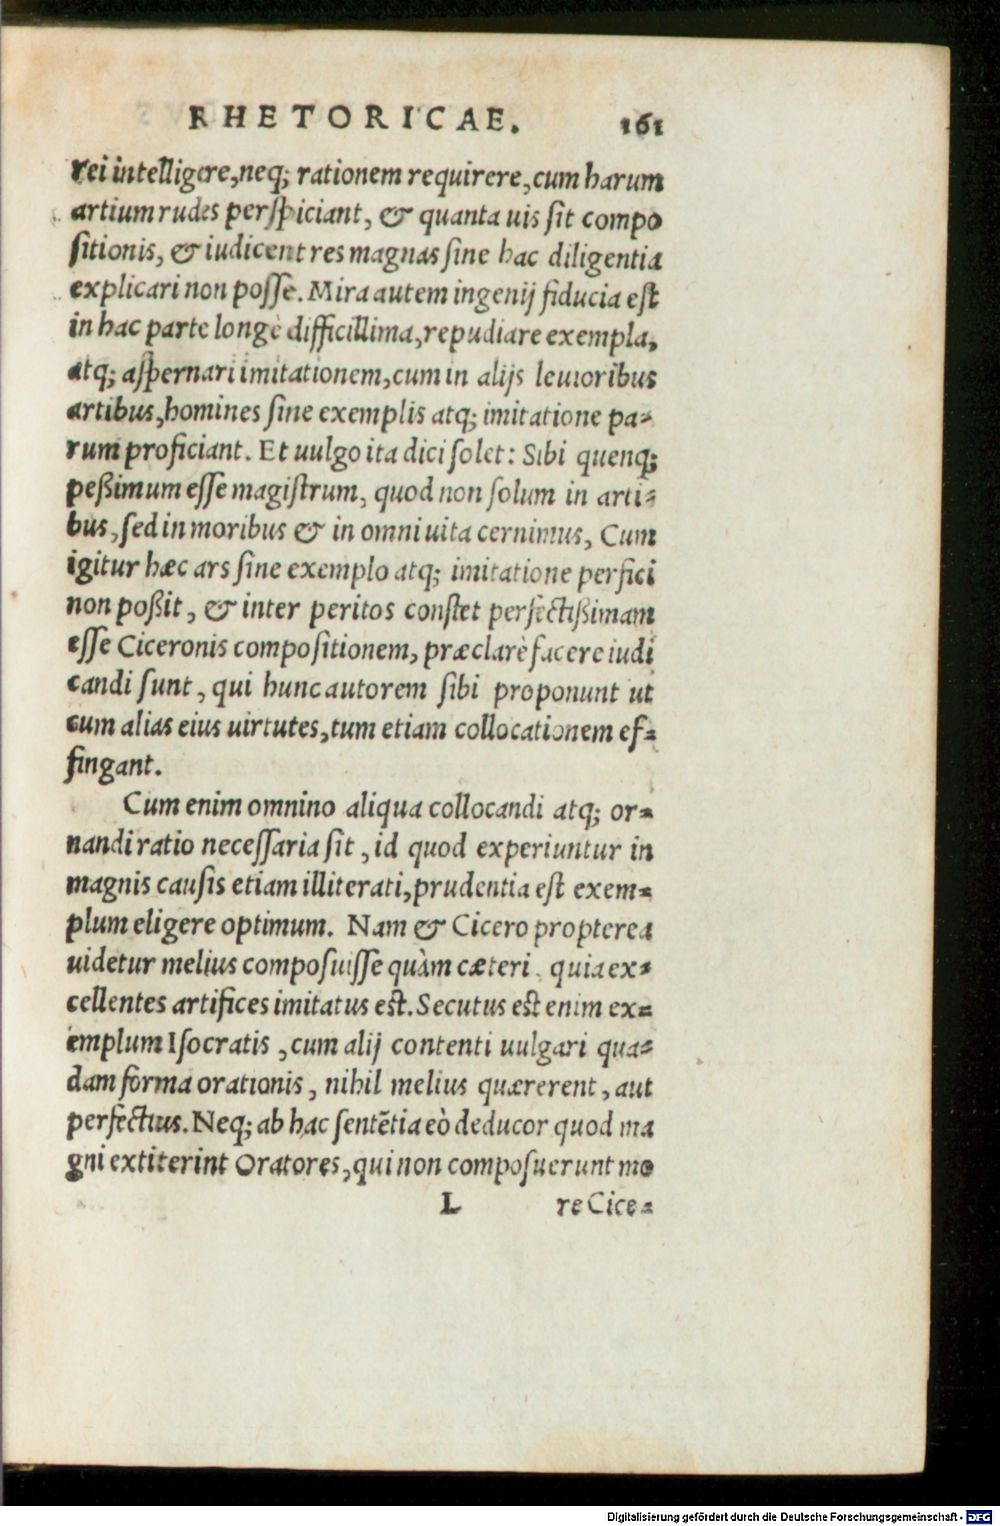 RHETORICAE. 161
rei intelligere, neq; rationem requirere, cum harum
artium rudes perspiciant, & quanta uis sit compo
sitionis, & iudicent res magnas sine hac diligentia
explicari non posse. Mira autem ingenij fiducia est
in hac parte longè difficillima, repudiare exempla,
atq; aspernari imitationem, cum in alijs leuioribus
artibus, homines sine exemplis atq; imitatione pa-
rum proficiant. Et uulgo ita dici solet: Sibi quenq;
peßimum esse magistrum, quod non solum in arti-
bus, sed in moribus & in omni uita cernimus, Cum
igitur hæc ars sine exemplo atq; imitatione perfici
non poßit, & inter peritos constet perfectißimam
esse Ciceronis compositionem, præclarè facere iudi
candi sunt, qui hunc autorem sibi proponunt ut
cum alias eius uirtutes, tum etiam collocationem ef-
fingant.
Cum enim omnino aliqua collocandi atq; or-
nandi ratio necessaria sit, id quod experiuntur in
magnis causis etiam illiterati, prudentia est exem-
plum eligere optimum. Nam & Cicero propterea
uidetur melius composuisse quàm cæteri, quia ex-
cellentes artifices imitatus est. Secutus est enim ex-
emplum Isocratis, cum alij contenti uulgari qua-
dam forma orationis, nihil melius quærerent, aut
perfectius. Neq; ab hac sentētia eò deducor quod ma
gni extiterint Oratores, qui non composuerunt mo
L re Cice-
Digitalisierung gefördert durch die Deutsche Forschungsgemeinschaft - DFG